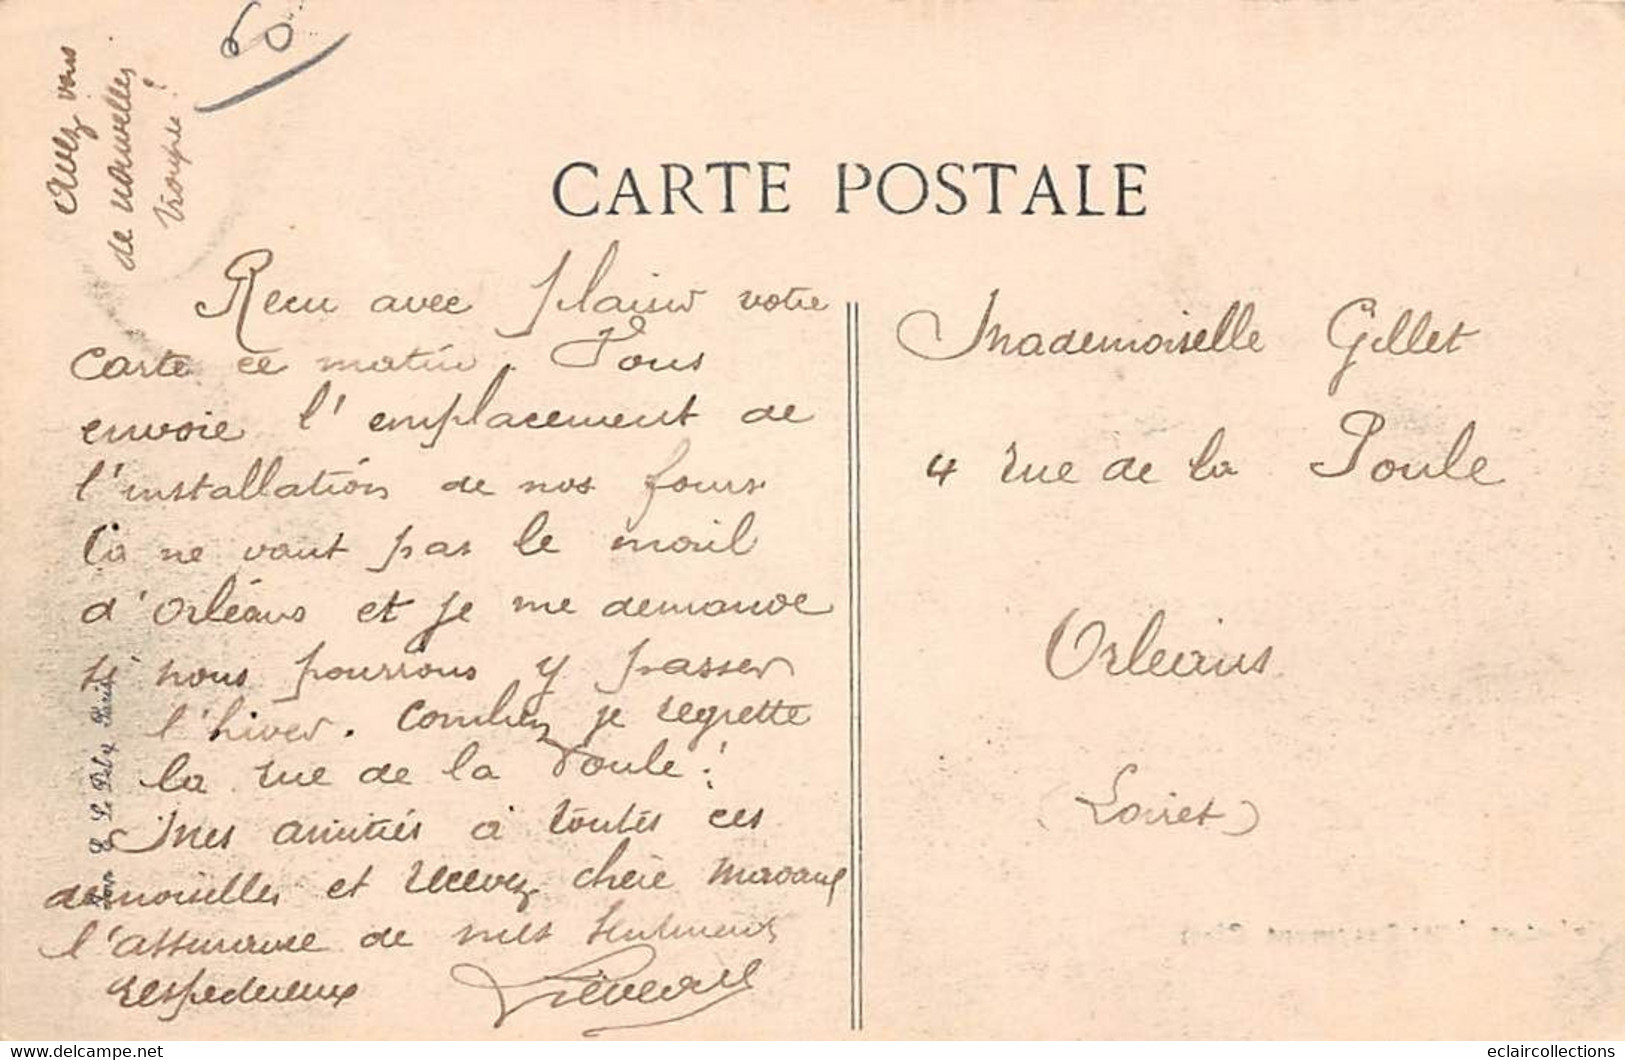 60
Avez vous
de nouvelles
troupes ?
CARTE POSTALE
Recu avec plaisir votre
carte ce matin. Vous
envoie l'emplacement de
l'installation de nos fours
Ca ne vaut pas le mail
d'Orléans et je me demande
si nous pourrons y passer
l'hiver. Combien je regrette
la rue de la Poule !
Mes amitiés à toutes ces
demoiselles et recevez chère Madame
l'assurance de mes sentiments
respectueux
Mademoiselle Gillet
4 rue de la Poule
Orleans
(Loiret)
E. Le Deley, Paris
eclaircollections - delcampe.net